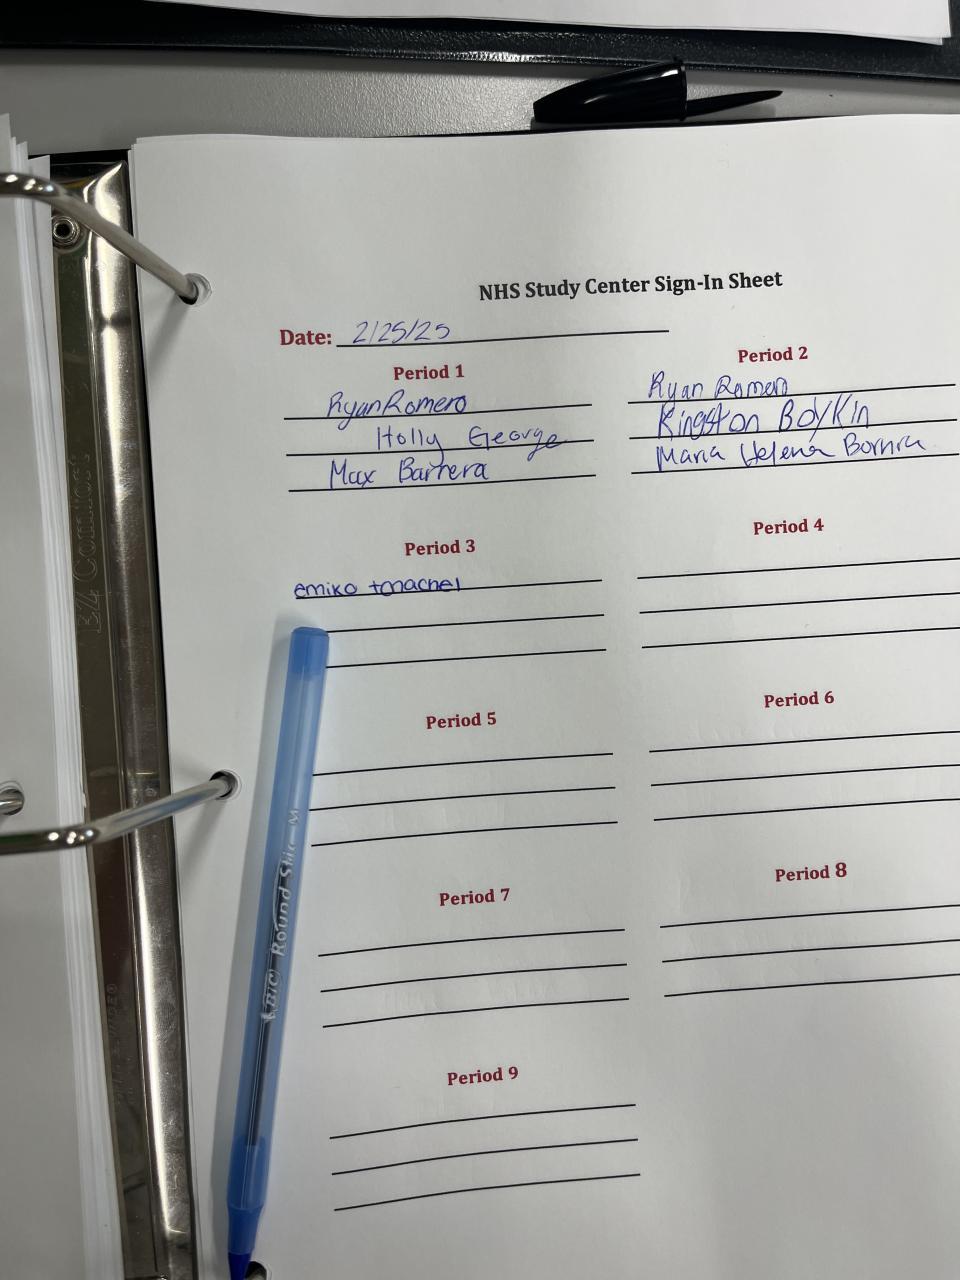 NHS Study Center Sign-In Sheet
Date: 2/25/25
Period 1
Ryan Romero
Holly George
Max Barrera
Period 2
Ryan Romero
Kingston Boykin
Maria Helena
Period 3
emiko
Period 4
Period 5
Period 6
Period 7
Period 8
Period 9
BIC Round Stic M